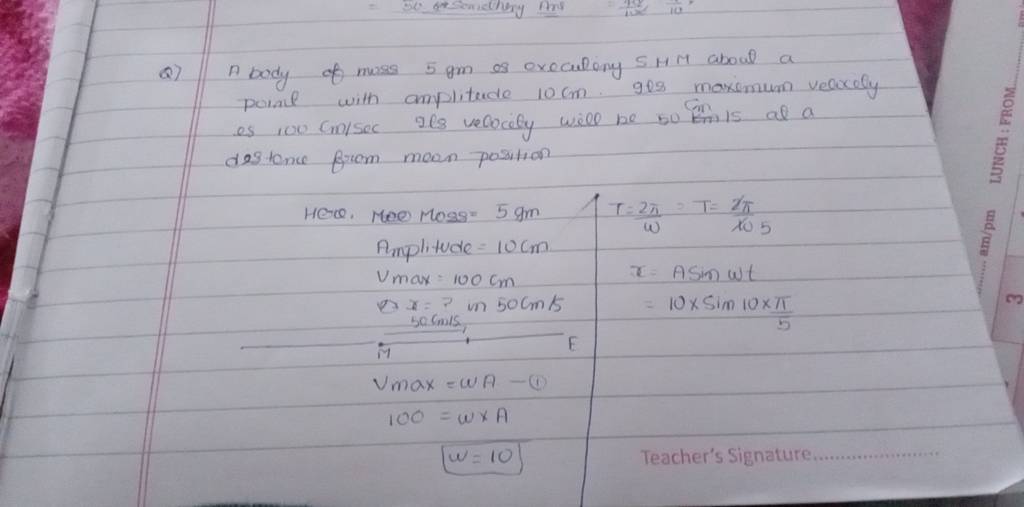 = 50 Ans = 10
Q) A body of mass 5 gm is executing SHM about a
point with amplitude 10 cm. its maximum velocity
is 100 cm/sec its velocity will be 50 cm/s at a
distance from mean position
Here, Mass = 5 gm
Amplitude = 10 cm
Vmax = 100 cm
x = ? in 50 cm/s
50 cm/s
M E
Vmax = wA - ①
100 = w x A
w = 10
T = 2π/w = T = 2π/10 5
x = A Sin wt
= 10 x Sin 10 x π/5
Teacher's Signature
am/pm LUNCH : FROM
3